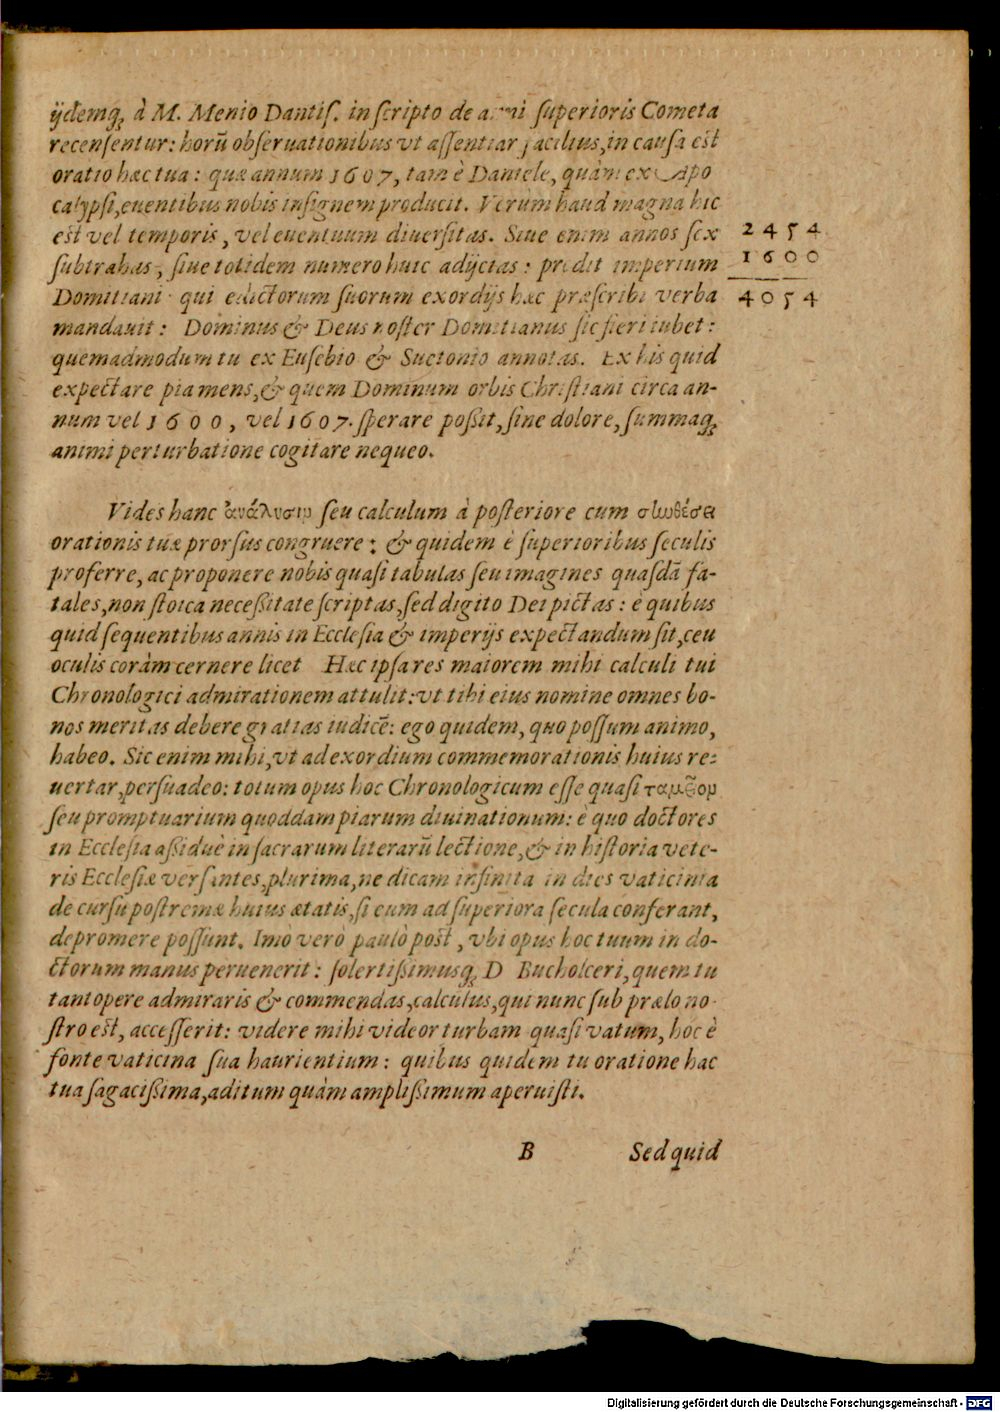 ijdemq́ꝫ à M. Menio Dantiſ. in ſcripto de anni ſuperioris Cometa
recenſentur: horū obſeruationibus vt aſſentiar facilius, in cauſa eſt
oratio hæc tua: quæ annum 1607, tam è Daniele, quàm ex Apo
calypſi, euentibus nobis inſignem producit. Verùm haud magna hic
eſt vel temporis, vel euentuum diuerſitas. Siue enim annos ſex
ſubtrahas, ſiue totidem numero huic adijcias: prodit imperium
Domitiani qui edictorum ſuorum exordijs hæc præſcribi verba
mandauit: Dominus & Deus noſter Domitianus ſic fieri iubet:
quemadmodum tu ex Euſebio & Suetonio annotas. Ex his quid
expectare pia mens, & quem Dominum orbis Chriſtiani circa an-
num vel 1600, vel 1607. ſperare poßit, ſine dolore, ſummaq́ꝫ
animi perturbatione cogitare nequeo.
2454
1600
4054
Vides hanc ἀνάλυσιν ſeu calculum à poſteriore cum συνθέσει
orationis tuæ prorſus congruere: & quidem è ſuperioribus ſeculis
proferre, ac proponere nobis quaſi tabulas ſeu imagines quaſdā fa-
tales, non ſtoica neceßitate ſcriptas, ſed digito Dei pictas: è quibus
quid ſequentibus annis in Eccleſia & imperijs expectandum ſit, ceu
oculis coràm cernere licet Hæc ipſa res maiorem mihi calculi tui
Chronologici admirationem attulit: vt tibi eius nomine omnes bo-
nos meritas debere gratias iudicē: ego quidem, quo poſſum animo,
habeo. Sic enim mihi, vt ad exordium commemorationis huius re-
uertar, perſuadeo: totum opus hoc Chronologicum eſſe quaſi ταμεῖον
ſeu promptuarium quoddam piarum diuinationum: è quo doctores
in Eccleſia aßiduè in ſacrarum literarū lectione, & in hiſtoria vete-
ris Eccleſiæ verſantes, plurima, ne dicam infinita in dies vaticinia
de curſu poſtremæ huius ætatis, ſi eum ad ſuperiora ſecula conferant,
depromere poſſunt. Imò verò paulò poſt, vbi opus hoc tuum in do-
ctorum manus peruenerit: ſolertißimusq́ꝫ D Bucholceri, quem tu
tantopere admiraris & commendas, calculus, qui nunc ſub prælo no
ſtro eſt, acceſſerit: videre mihi videor turbam quaſi vatum, hoc è
fonte vaticina ſua haurientium: quibus quidem tu oratione hac
tua ſagacißima, aditum quàm amplißimum aperuiſti.
B Sed quid
Digitalisierung gefördert durch die Deutsche Forschungsgemeinschaft - DFG